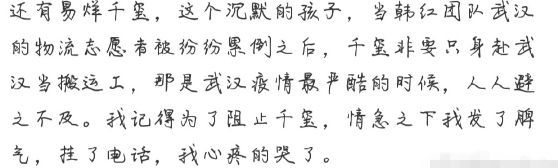 还有易烊千玺，这个沉默的孩子，当韩红团队武汉
的物流志愿者被纷纷累倒之后，千玺非要只身赴武
汉当搬运工，那是武汉疫情最严酷的时候，人人避
之不及。我记得为了阻止千玺，情急之下我发了脾
气，挂了电话，我心疼的哭了。